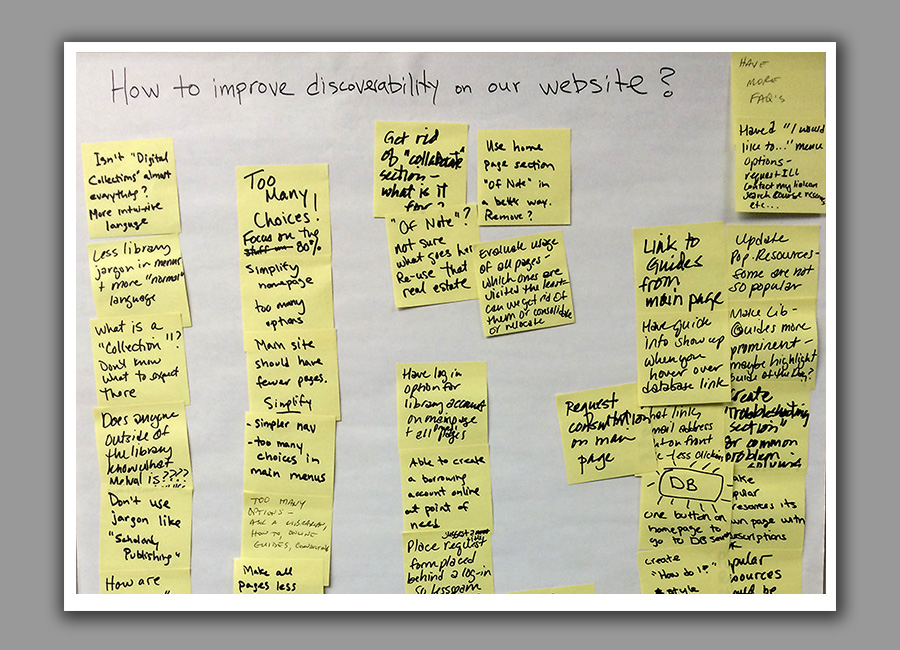 How to improve discoverability on our website?
Isn't "Digital
Collections" almost
everything?
More intuitive
language
Less library
jargon in menus
+ more "normal"
language
what is a
"Collection"!?
Don't know
what to expect
there
Does anyone
outside of
the library
know what
is????
Don't use
jargon like
"Scholarly
Publishing"
How are
Too
Many
Choices!
Focus on the
80%
Simplify
homepage
too many
options
Main site
should have
fewer pages.
Simplify
- Simpler nav
- too many
choices in
main menus
TOO MANY
OPTIONS -
ASK A LIBRARIAN,
HOW TO, ONLINE
GUIDES,
Make all
pages less
Get rid
of "collaborate"
section -
what is it
for?
"Of Note"?
not sure
what goes here
Re-use that
real estate
Use home
page section
"Of Note" in
a better way.
Remove?
Evaluate usage
of all pages -
which ones are
visited the least -
can we get rid of
them or consolidate
or relocate
Have log in
option for
library account
on main page
+ all pages
Able to create
a borrowing
account online
at point of
need
Place request
form placed
behind a log-in
so less spam
Request
consultation
on main
page
Link to
Guides
from
main page
Have guide
info show up
when you
hover over
database link
link,
address
on front
less clicking
DB
one button on
homepage to
go to DB
create
"How do I?"
style
HAVE
MORE
FAQ's
Have a "I would
like to..." menu
options -
request ILL
contact my liaison
search course
etc...
Update
Pop. Resources -
some are not
so popular
Make Lib-
Guides more
prominent -
maybe highlight
Guide of the Day?
"Troubleshooting
section"
common
problem -
its
page with